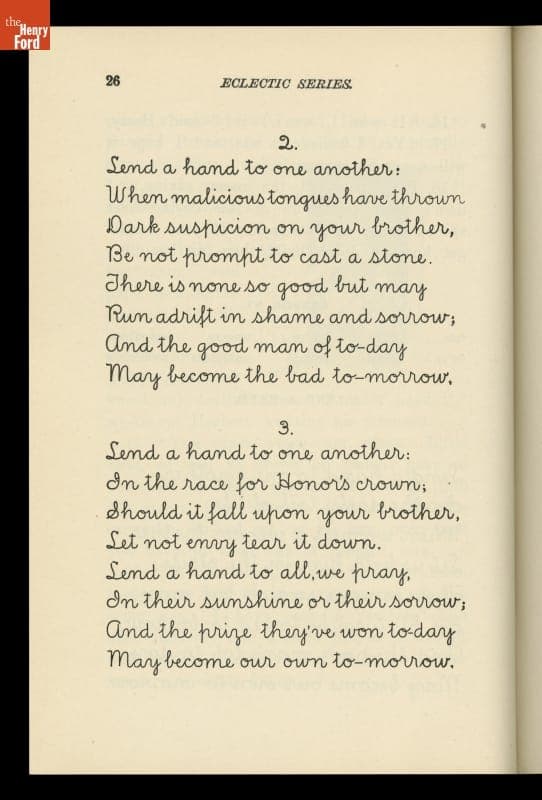 the
Henry
Ford
26 ECLECTIC SERIES.
2.
Lend a hand to one another:
When malicious tongues have thrown
Dark suspicion on your brother,
Be not prompt to cast a stone.
There is none so good but may
Run adrift in shame and sorrow;
And the good man of to-day
May become the bad to-morrow.
3.
Lend a hand to one another:
In the race for Honor's crown;
Should it fall upon your brother,
Let not envy tear it down.
Lend a hand to all, we pray,
In their sunshine or their sorrow;
And the prize they've won to-day
May become our own to-morrow.